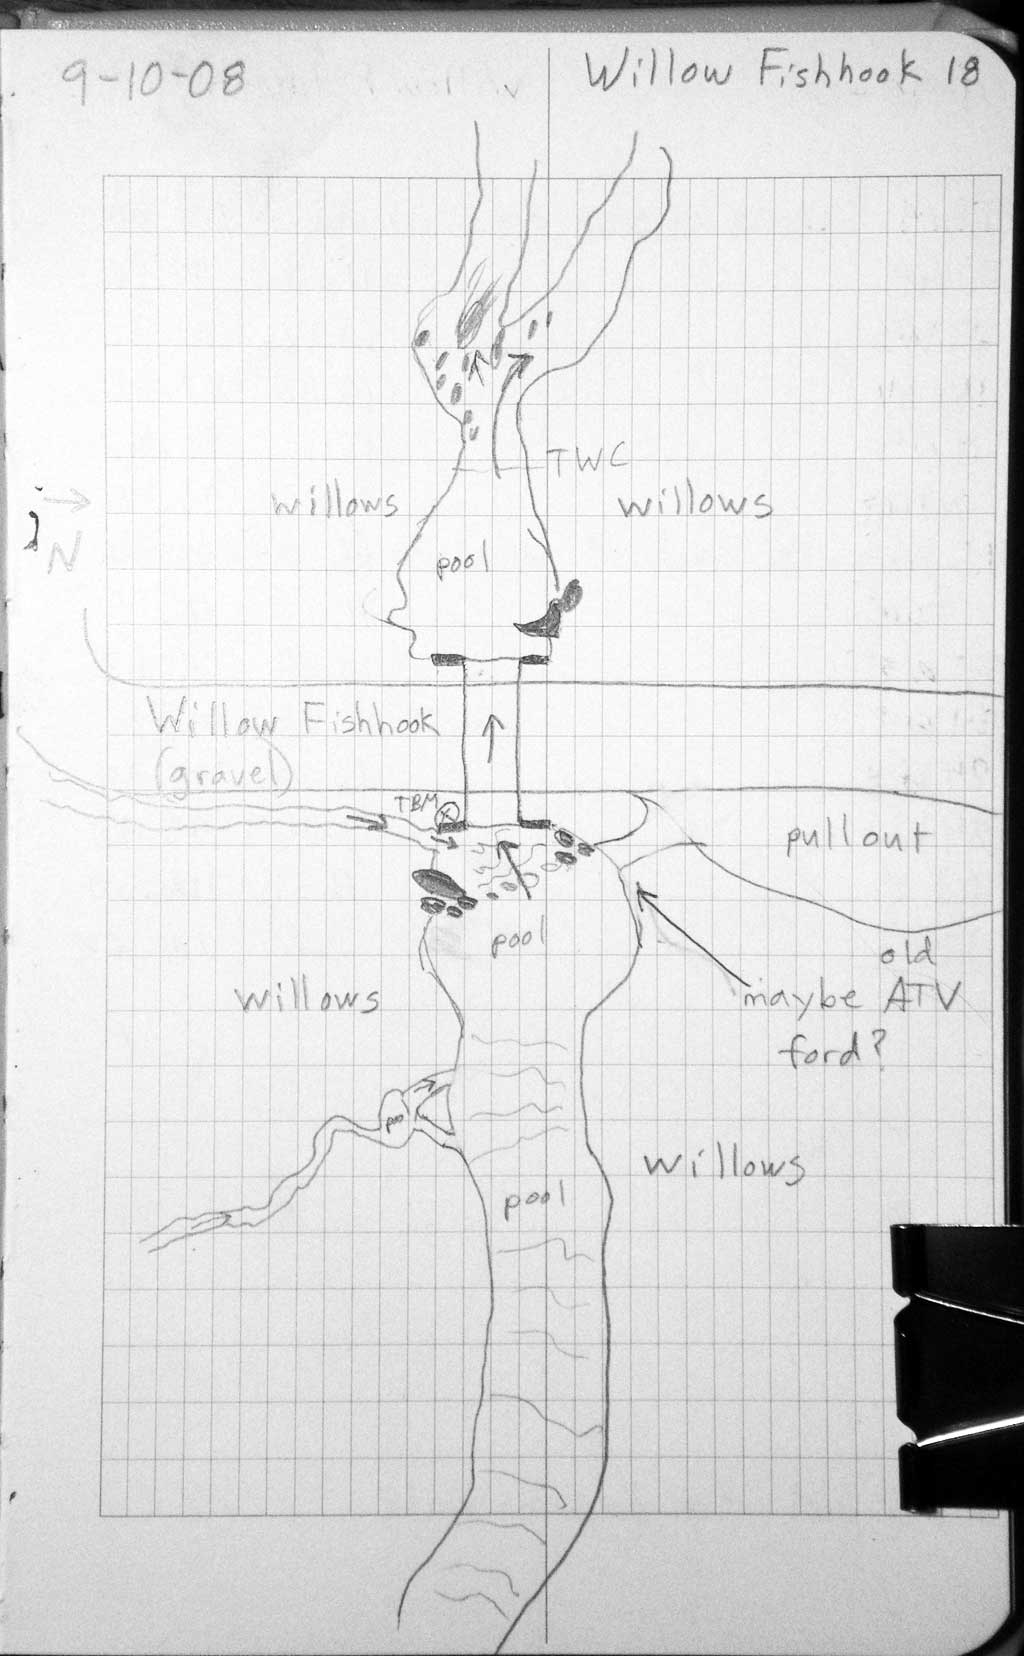 9-10-08
Willow Fishhook 18
TWC
willows
willows
N
pool
Willow Fishhook
(gravel)
TBM
pull out
pool
old
maybe ATV
ford?
willows
poo
willows
pool